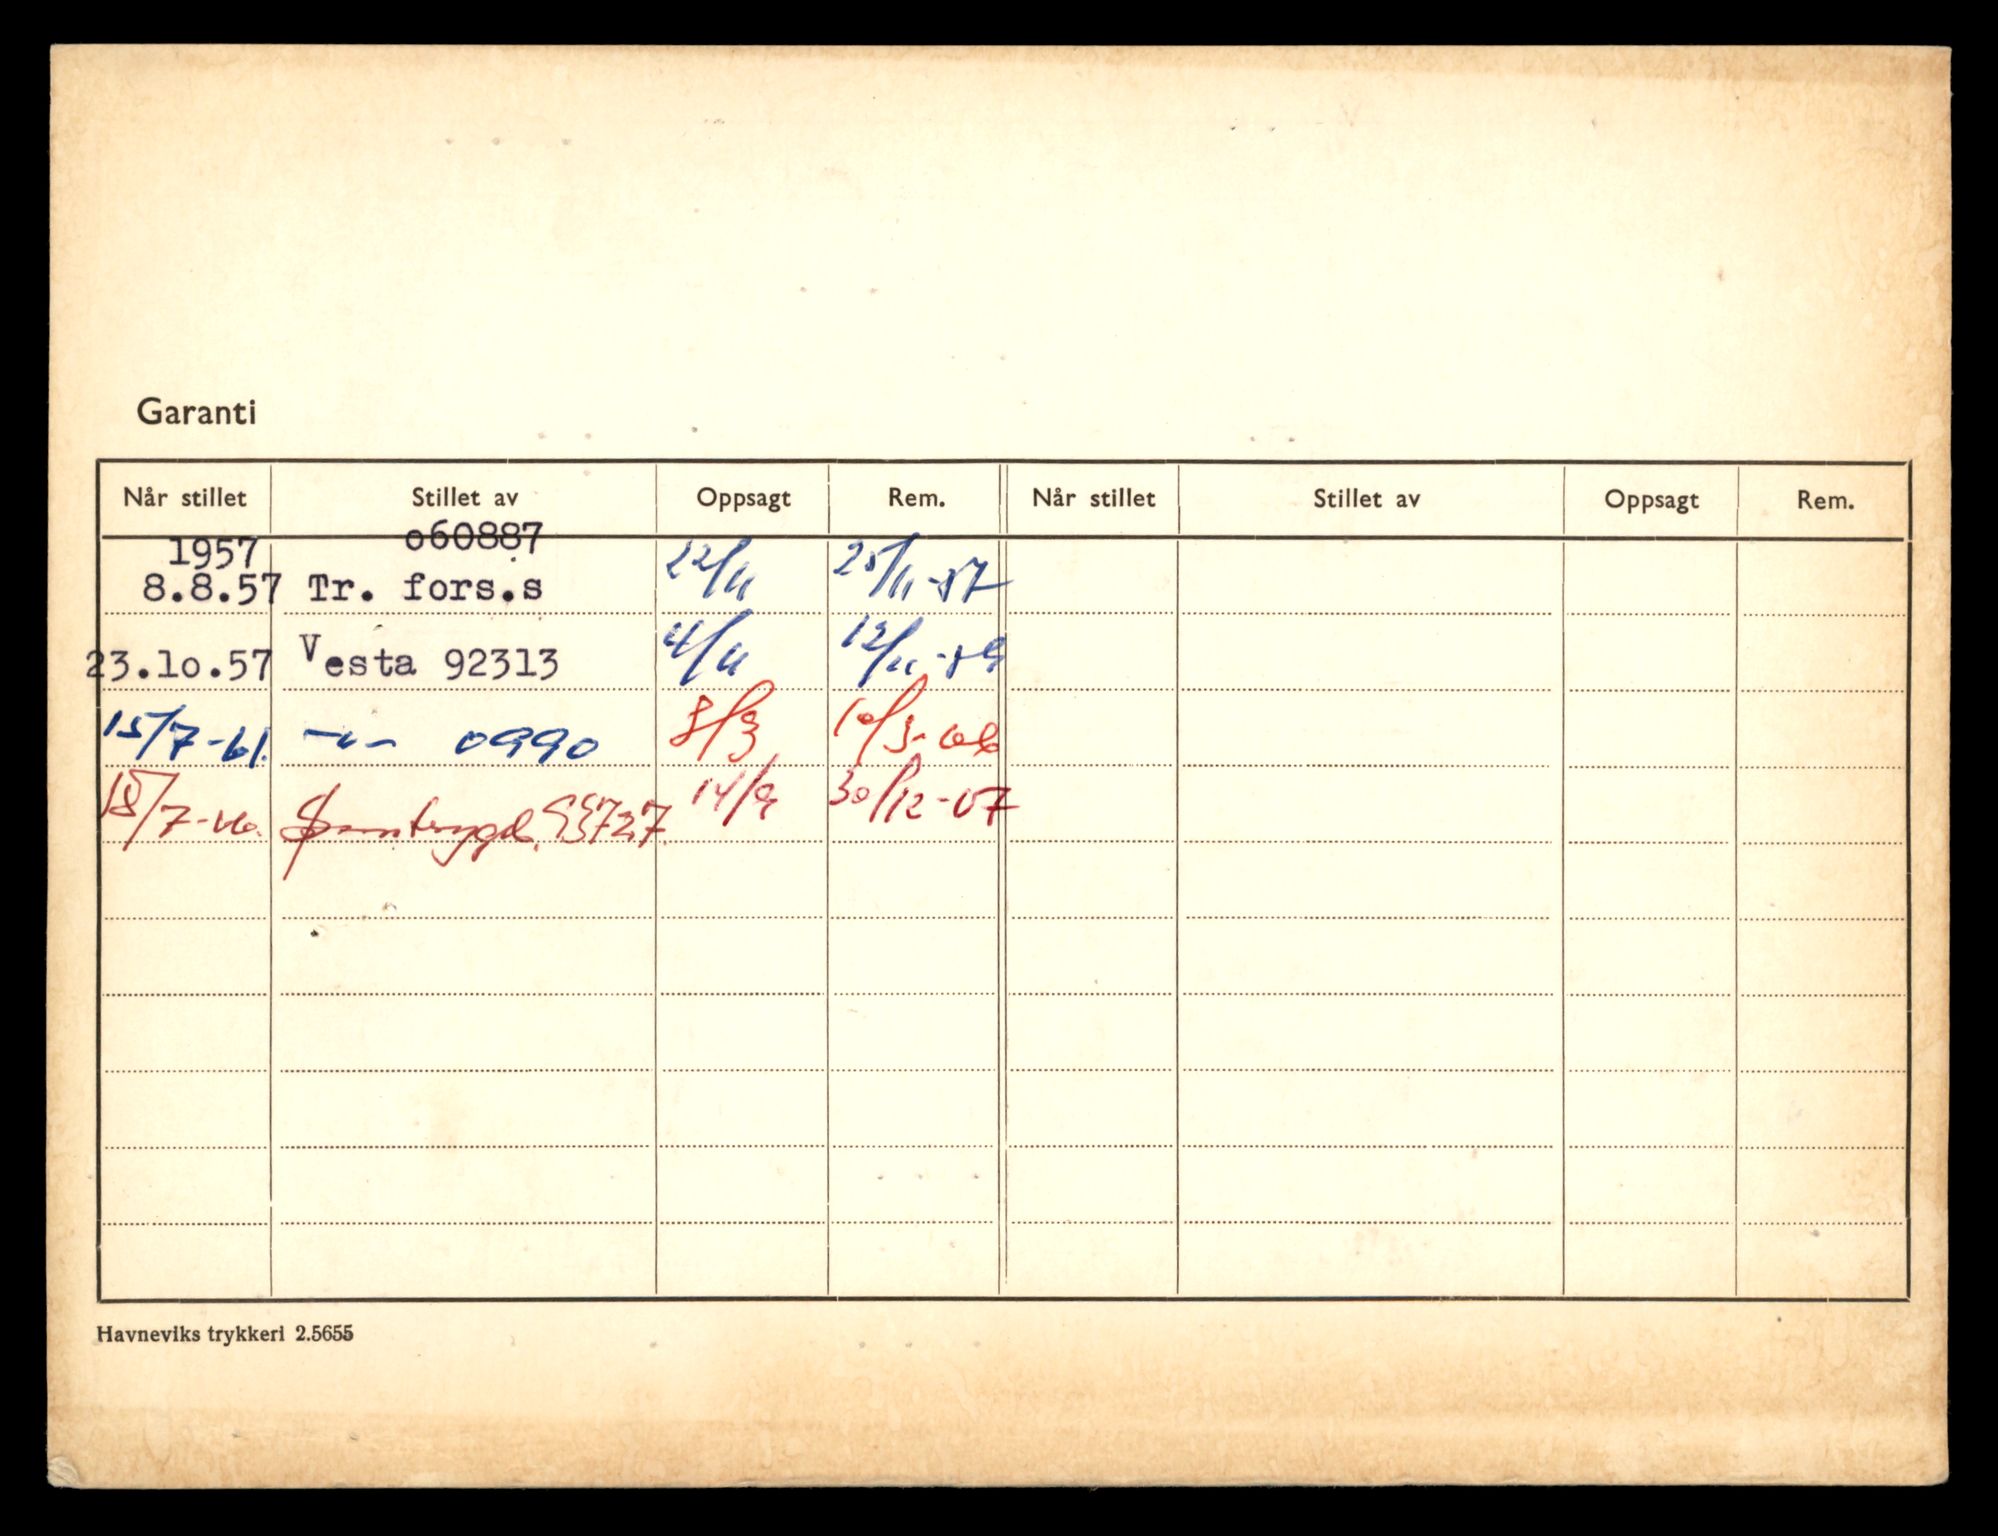 Garanti
Når stillet Stillet av Oppsagt Rem. Når stillet Stillet av Oppsagt Rem.
1957 o60887
8.8.57 Tr. fors.s 22/11 25/11-57
23.1o.57 Vesta 92313 4/11 12/11-59
15/7-61. -"- 0990 8/3 10/3-66
18/7-66. Samtrygd. 93727 14/9 30/12-67
Havneviks trykkeri 2.5655